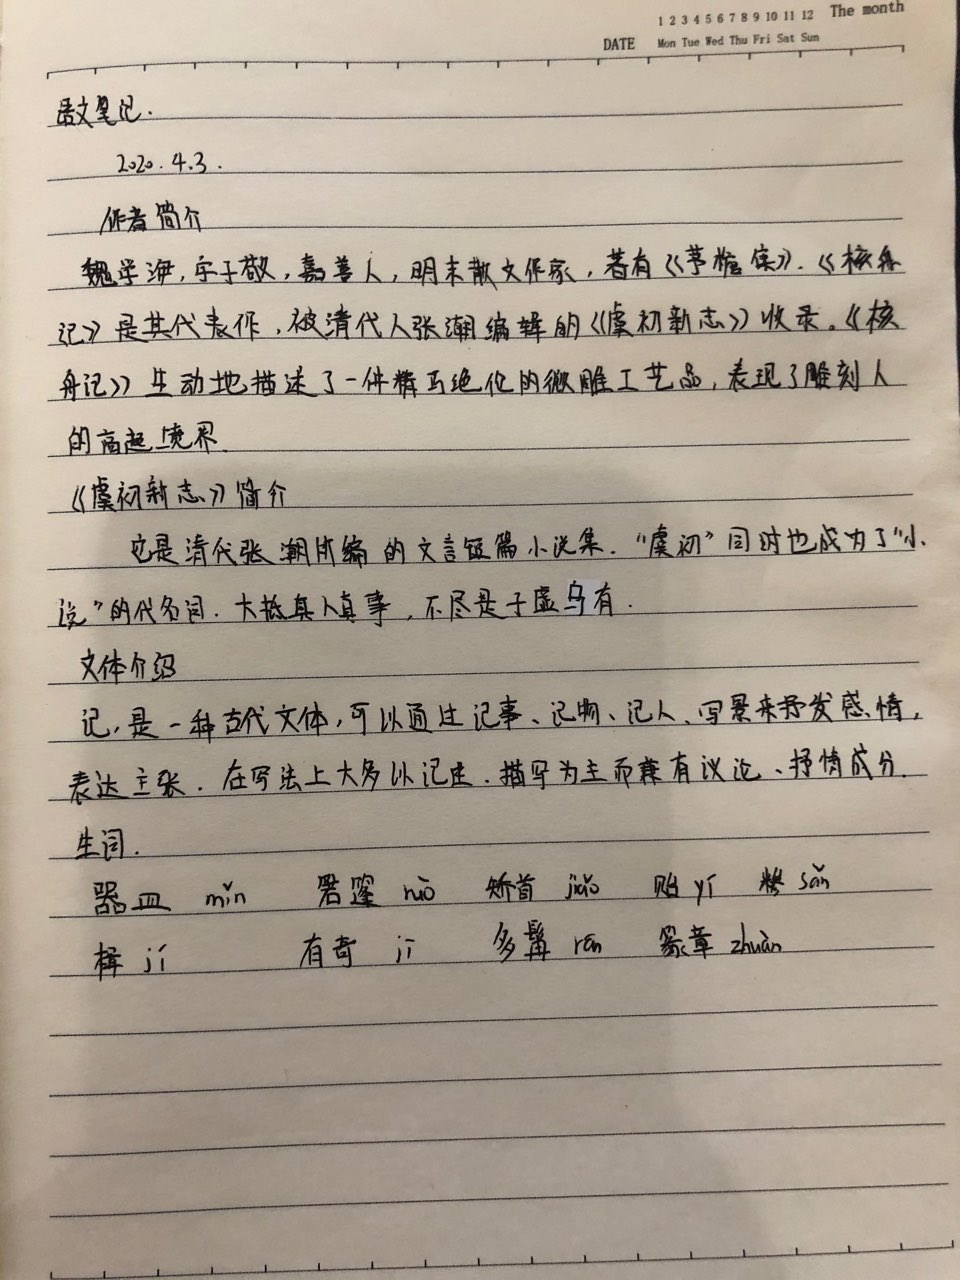 1 2 3 4 5 6 7 8 9 10 11 12 The month
DATE Mon Tue Wed Thu Fri Sat Sun
语文笔记.
2020.4.3.
作者简介
魏学洢,字子敬,嘉善人,明末散文作家,著有《茅檐集》.《核舟
记》是其代表作,被清代人张潮编辑的《虞初新志》收录。《核
舟记》生动地描述了一件精巧绝伦的微雕工艺品,表现了雕刻人
的高超境界.
《虞初新志》简介
它是清代张潮所编的文言短篇小说集.“虞初”同时也成为了“小
说”的代名词.大抵真人真事,不尽是子虚乌有.
文体介绍
记,是一种古代文体,可以通过记事、记物、记人、写景来抒发感情,
表达主张.在写法上大多以记述、描写为主而兼有议论、抒情成分.
生词.
器皿 mǐn 箬篷 ruò 矫首 jiǎo 贻 yí 糁 sǎn
楫 jí 有奇 jī 多髯 rán 篆章 zhuàn